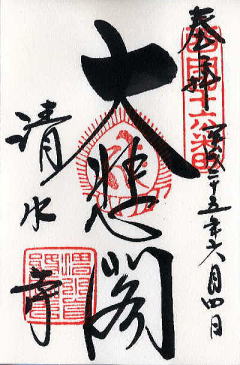 奉拝
西国十六番
平成二十五年六月四日
大悲閣
清水寺